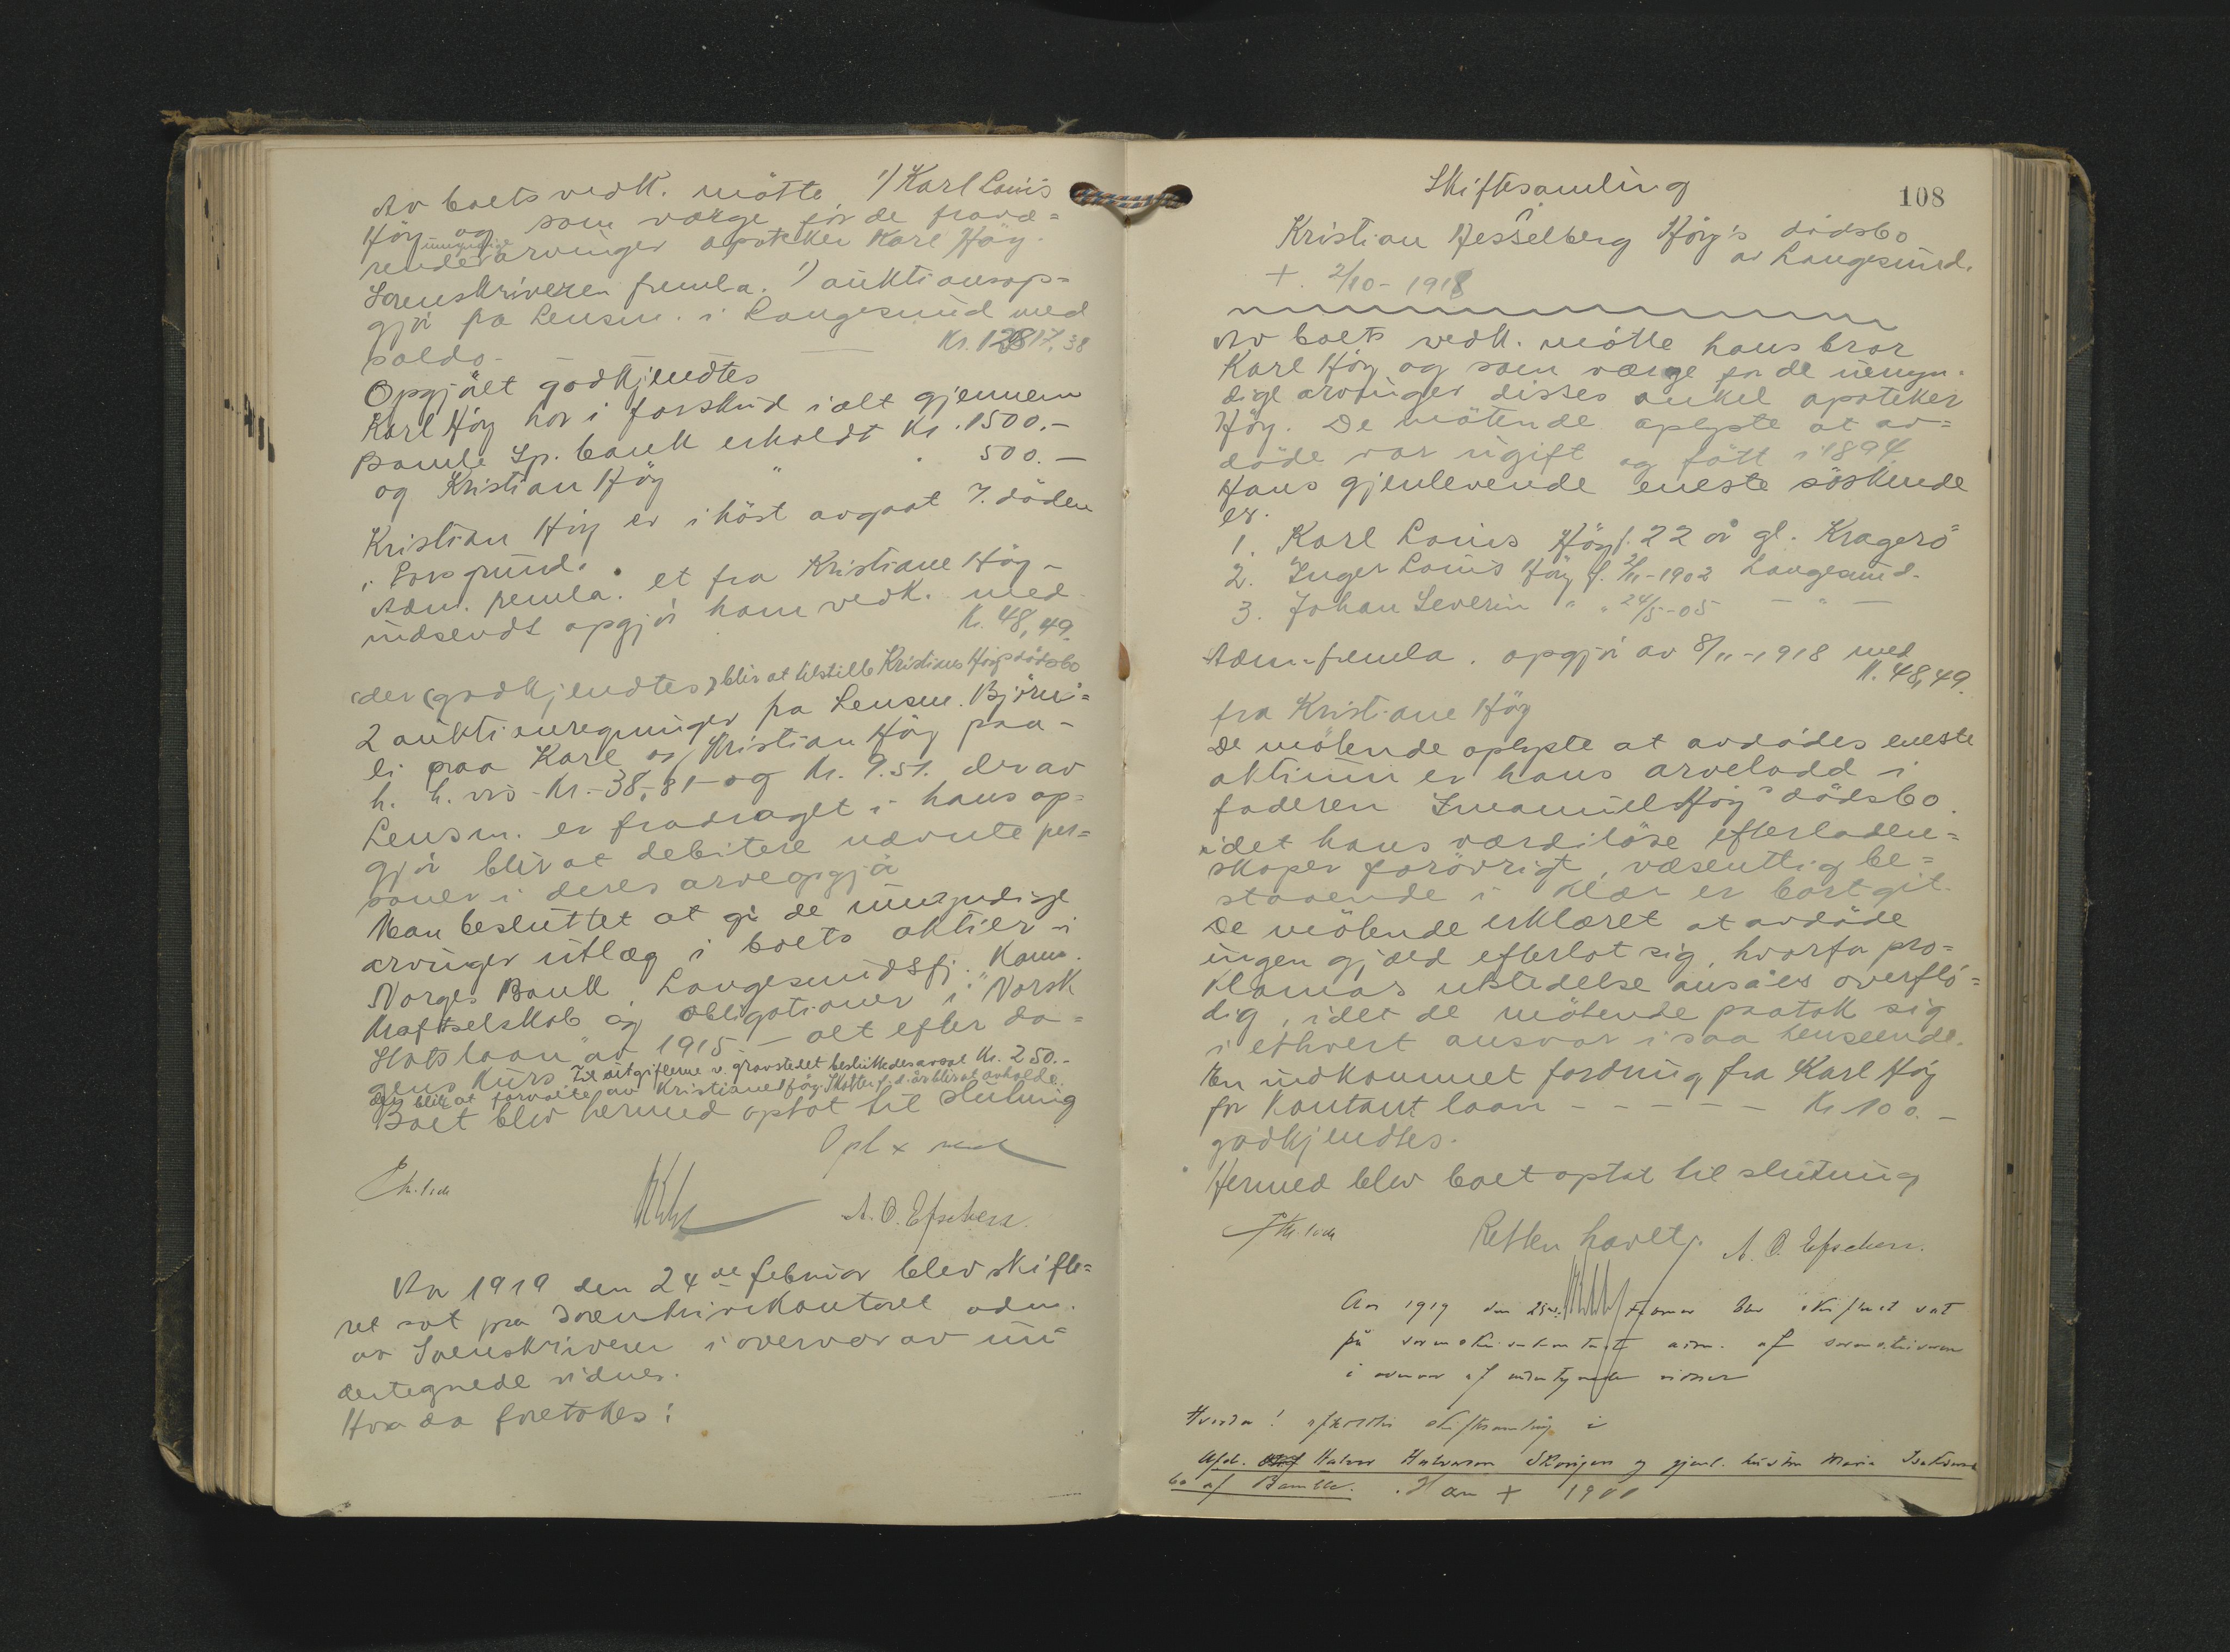 Av boets vedk. mötte 1) Karl Louis
Höy og som værge for de fravæ=
rende umyndige arvinger apoteker Karl Höy.
Sorenskriveren fremla. 1) auktionsop=
gjör fra Lensm. i Langesund med
saldo - — — — Kr. 12817,38
Opgjöret godkjendtes
Karl Höy har i forskud ialt gjennem
Bamle Sp. bank erholdt Kr. 1500.-
og Kristian Höy " . 500.—
Kristian Höy er i höst avgaat v. döden
i Porsgrund.
Adm. fremla. et fra Kristiane Höy -
indsendt opgjör ham vedk. med
Kr. 48,49.
der (godkjendtes) blir at tilstille Kristians Höys dödsbo
2 auktionsregninger fra Lensm. Björn=
li paa Karl og Kristian Höy paa-
h. h. vis - Kr. 38,81 og Kr. 9.51. der av
Lensm. er fradraget i hans op=
gjör blir at debitere nævnte per=
soner i deres arveopgjör
Man besluttet at gi de umyndige
arvinger utlæg i boets aktier i
Norges Bank, Langesundsfj. Kom.
Kraftselskab og obligationer i "Norsk
Statslaan" av 1915. - alt efter da=
gens kurs. Til utgifterne v. gravstedet besluttedes avsat Kr. 250.-
der blir at forvalte av Kristiane Höy. Skatter f. d. år blir at avholde.
Boet blev hermed optat til slutning
Opl x
A. O. Efskern.
Aar 1919 den 24de februar blev skifte=
ret sat paa Sorenskriverkontoret adm.
av Sorenskriveren i overvær av un=
dertegnede vidner.
Hvor da foretokes:
108
Skiftesamling
i
Kristian Hesselberg Höy's dödsbo
av Langesund.
+. 2/10 - 1918
Av boets vedk. mötte hans bror
Karl Höy og som værge for de umyn-
dige arvinger disses onkel apoteker
Höy. De mötende oplyste at av=
döde var ugift og född i 1894
Hans gjenlevende eneste söskende
er.
1. Karl Louis Höy f. 22 år gl. Kragerö
2. Inger Louis Höy f. 2/11 - 1902 Langesund.
3. Johan Severin " " 24/5 - 05 — " —
Adm. fremla. opgjör av 8/11 - 1918 med
K. 48,49.
fra Kristiane Höy
De mötende oplyste at avdödes eneste
aktivum er hans arvelodd i
faderen Imanuel Höy's dödsbo.
idet hans værdilöse efterladen=
skaper forövrigt, væsentlig be=
staaende i klær er bortgit.
De mötende erklæret at avdöde
ingen gjæld efterlot sig, hvorfor pro=
klamas utstedelse ansåes overflö=
dig, idet de mötende paatok sig
i ethvert ansvar i saa henseende.
En indkommet fordring fra Karl Höy
for kontant laan - - - - - Kr 100.-
godkjendtes.
Hermed blev boet optat til slutning
Retten hævet.
A. O. Efskern.
Aar 1919 den 25de februar blev skifteret sat
på sorenskriverkontoret adm. af sorenskriveren
i overvær af undertegnede vidner
Hvorda! afholdtes skiftesamling i
Afd. Halvor Halvorsen Skougen og gjenl. hustru Maria Isaksens
bo af Bamble. Han + 1900